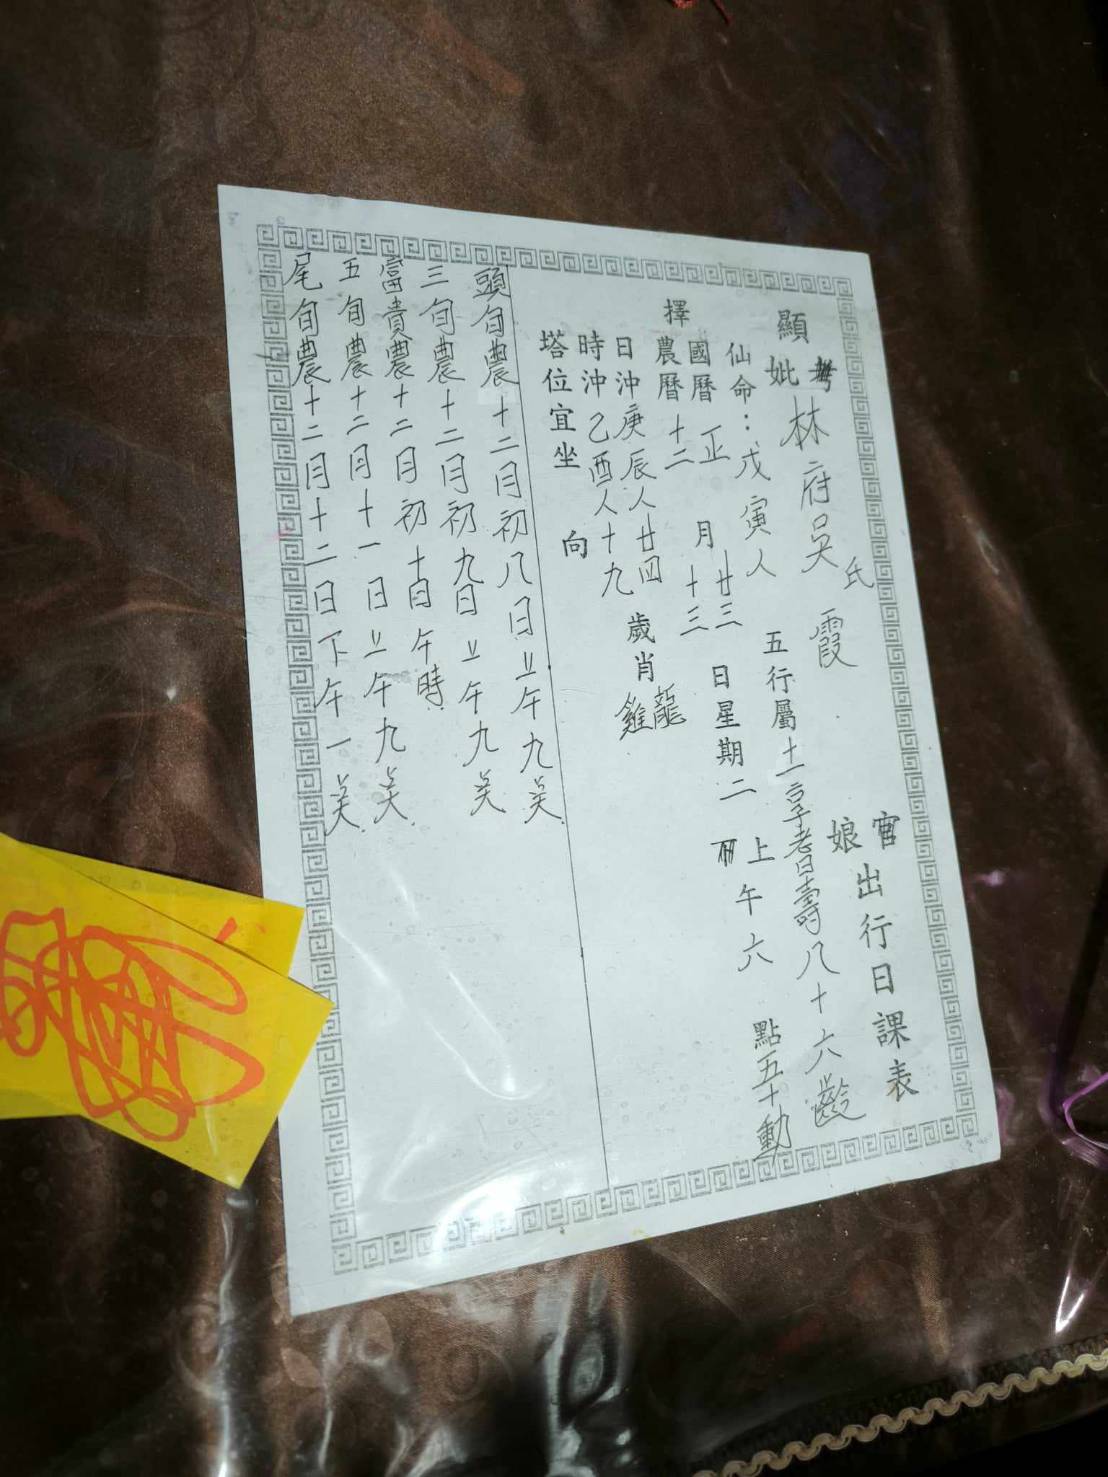 官娘出行日課表
顯考妣林府吳氏霞
仙命：戊寅人 五行屬土 享老日壽八十六齡
擇國曆 正月廿三日星期二 上午六點五十動
農曆 十二月十三
日沖庚辰人廿四歲肖龍
時沖乙酉人十九歲肖雞
塔位宜坐 向
頭旬農十二月初八日上午九
三旬農十二月初九日上午九
富貴農十二月初十日午時
五旬農十二月十一日上午九
尾旬農十二月十二日下午一